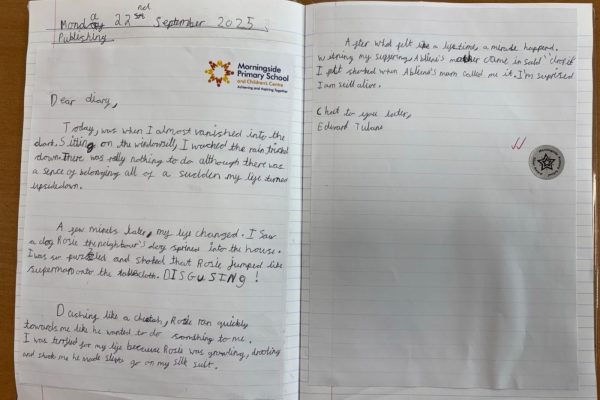 Monday 22nd September 2025
Publishing
Morningside
Primary School
and Children's Centre
Achieving and Aspiring Together
Dear diary,
Today, was when I almost vanished into the
dark. Sitting on the windowsill, I watched the rain trickl
down. There was relly nothing to do although there was
a sence of belonging all of a sudden my life turned
upsidedown.
A few minets later, my life changed. I saw
a dog Rosie the neighbour's dog sprined into the house.
I was so puzzled and shoked that Rosie jumped like
superman onto the tablecloth. DISGUSING!
Dashing like a cheetah, Rosie ran quickly
towards me like he wanted to do somthing to me.
I was terified for my life because Rosie was growling, drooling
and shook me he made go on my silk suit.
After what felt like a lifetime, a minute happend.
W my suffering, Abilene's mother came in said drop it
I felt shocked when Abilene's mum called me it. I'm suprised
I am still alive.
Chat to you later,
Edward Tulane